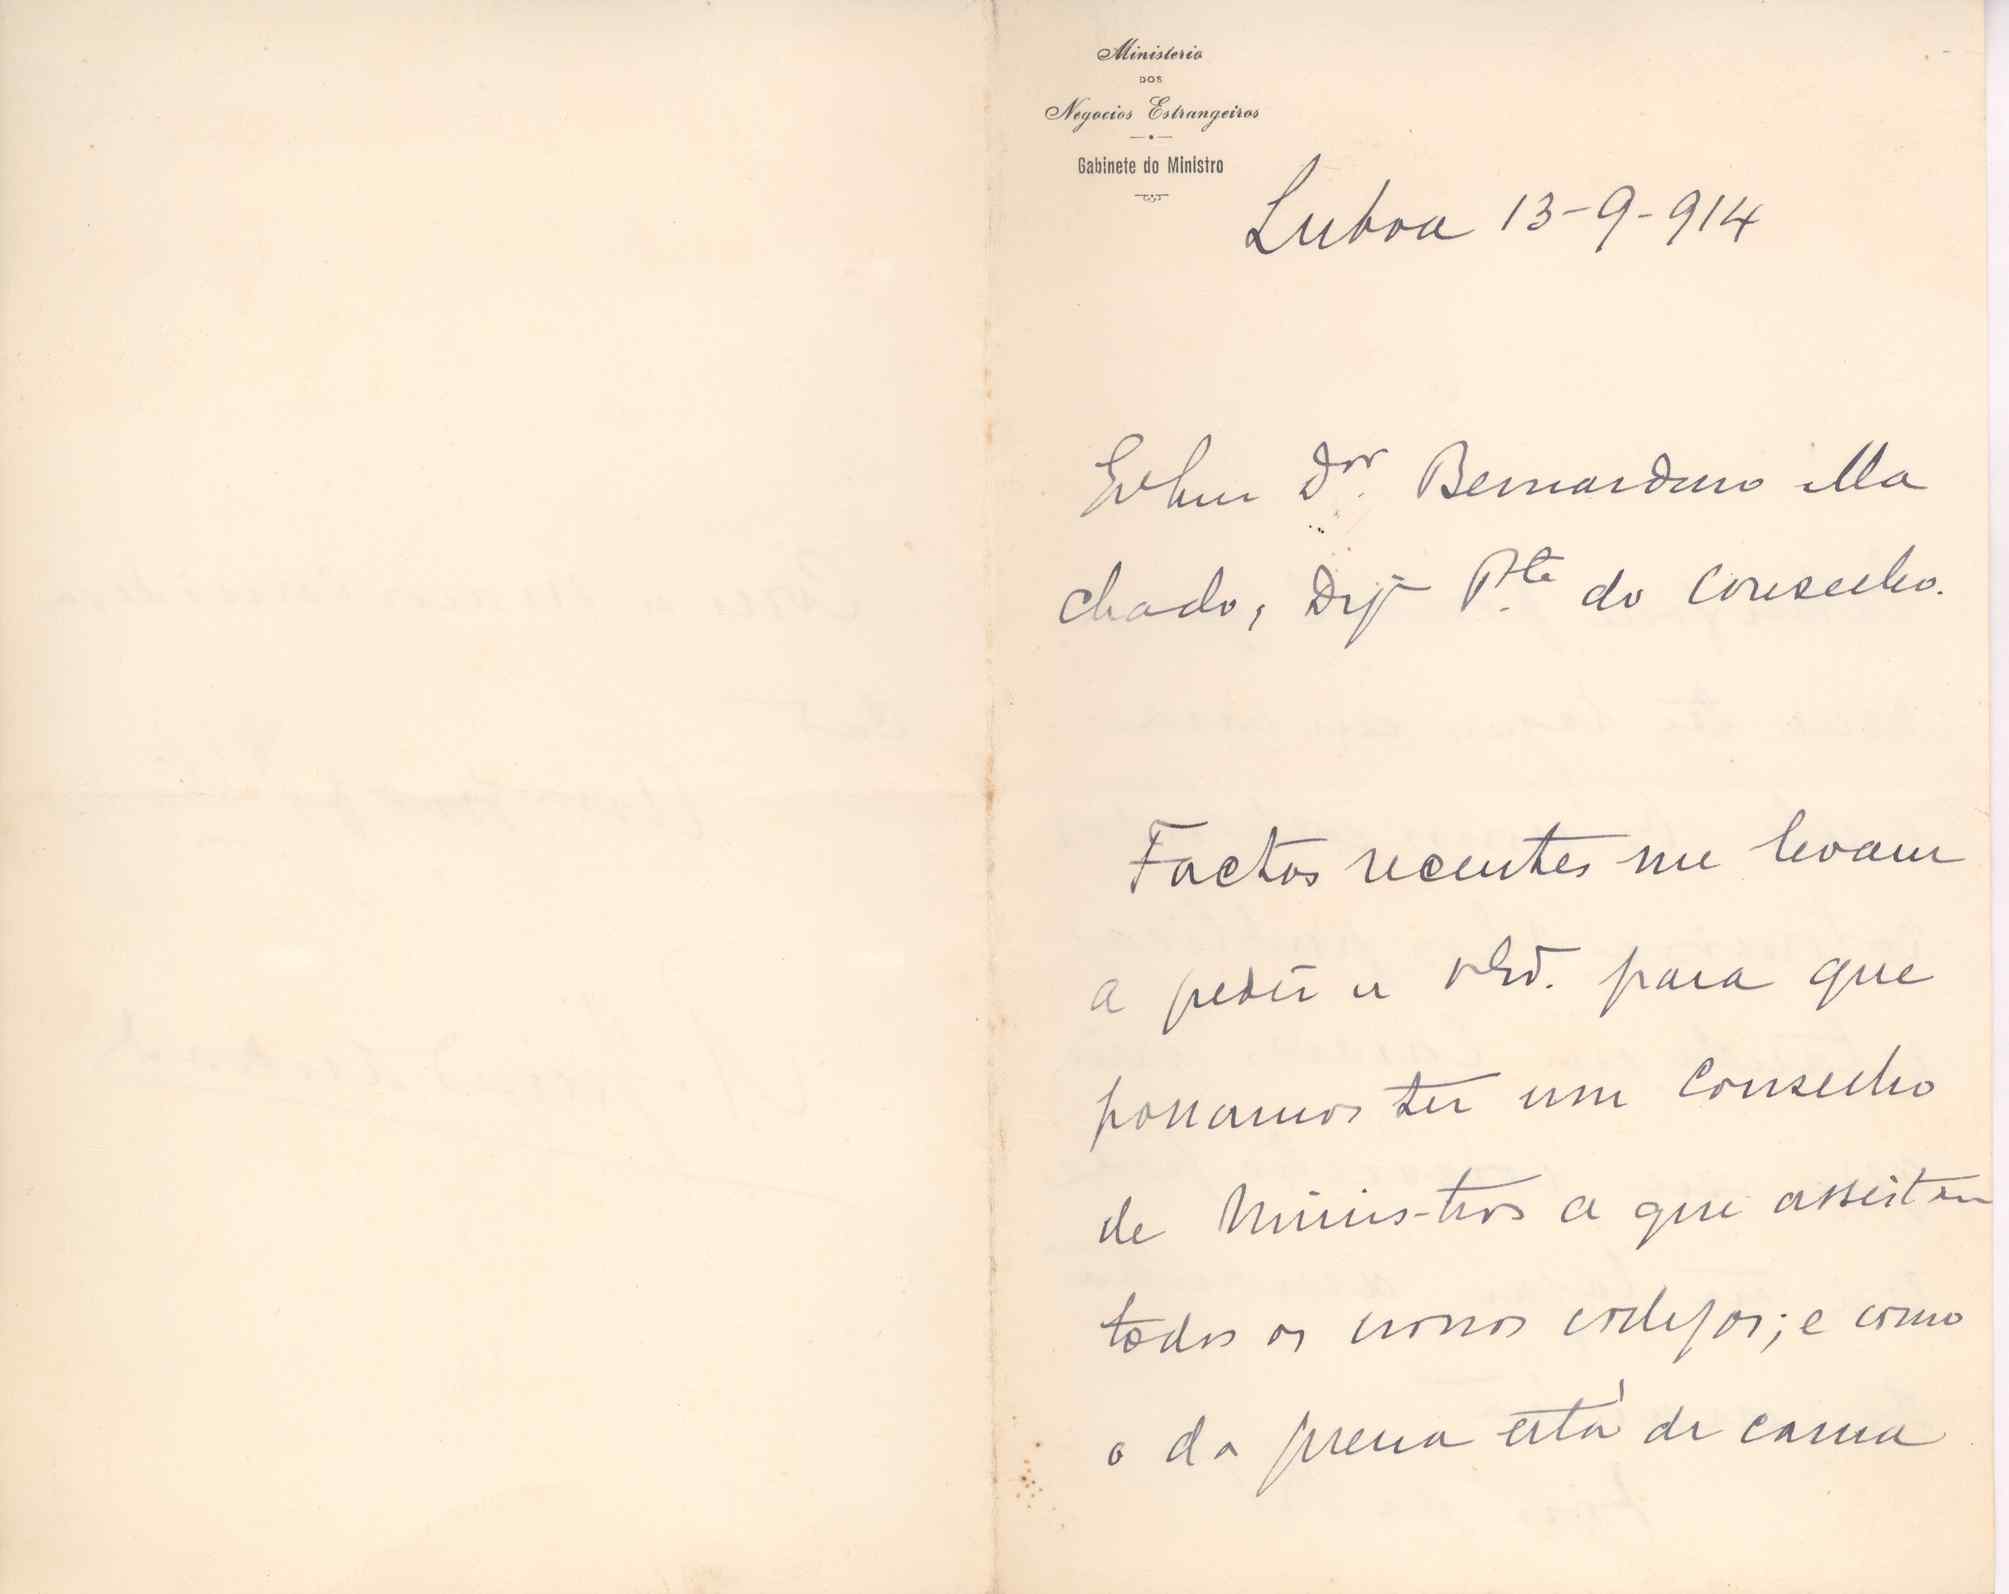 Ministerio
DOS
Negocios Estrangeiros
Gabinete do Ministro
Lisboa 13-9-914
Exmo Dor. Bernardino Ma
chado, Digo Pte do Conselho.
Factos recentes me levam
a pedir a V. Exa. para que
possamos ter um conselho
de Ministros a que assistam
todos os nossos colegas; e como
o da guerra está de cama